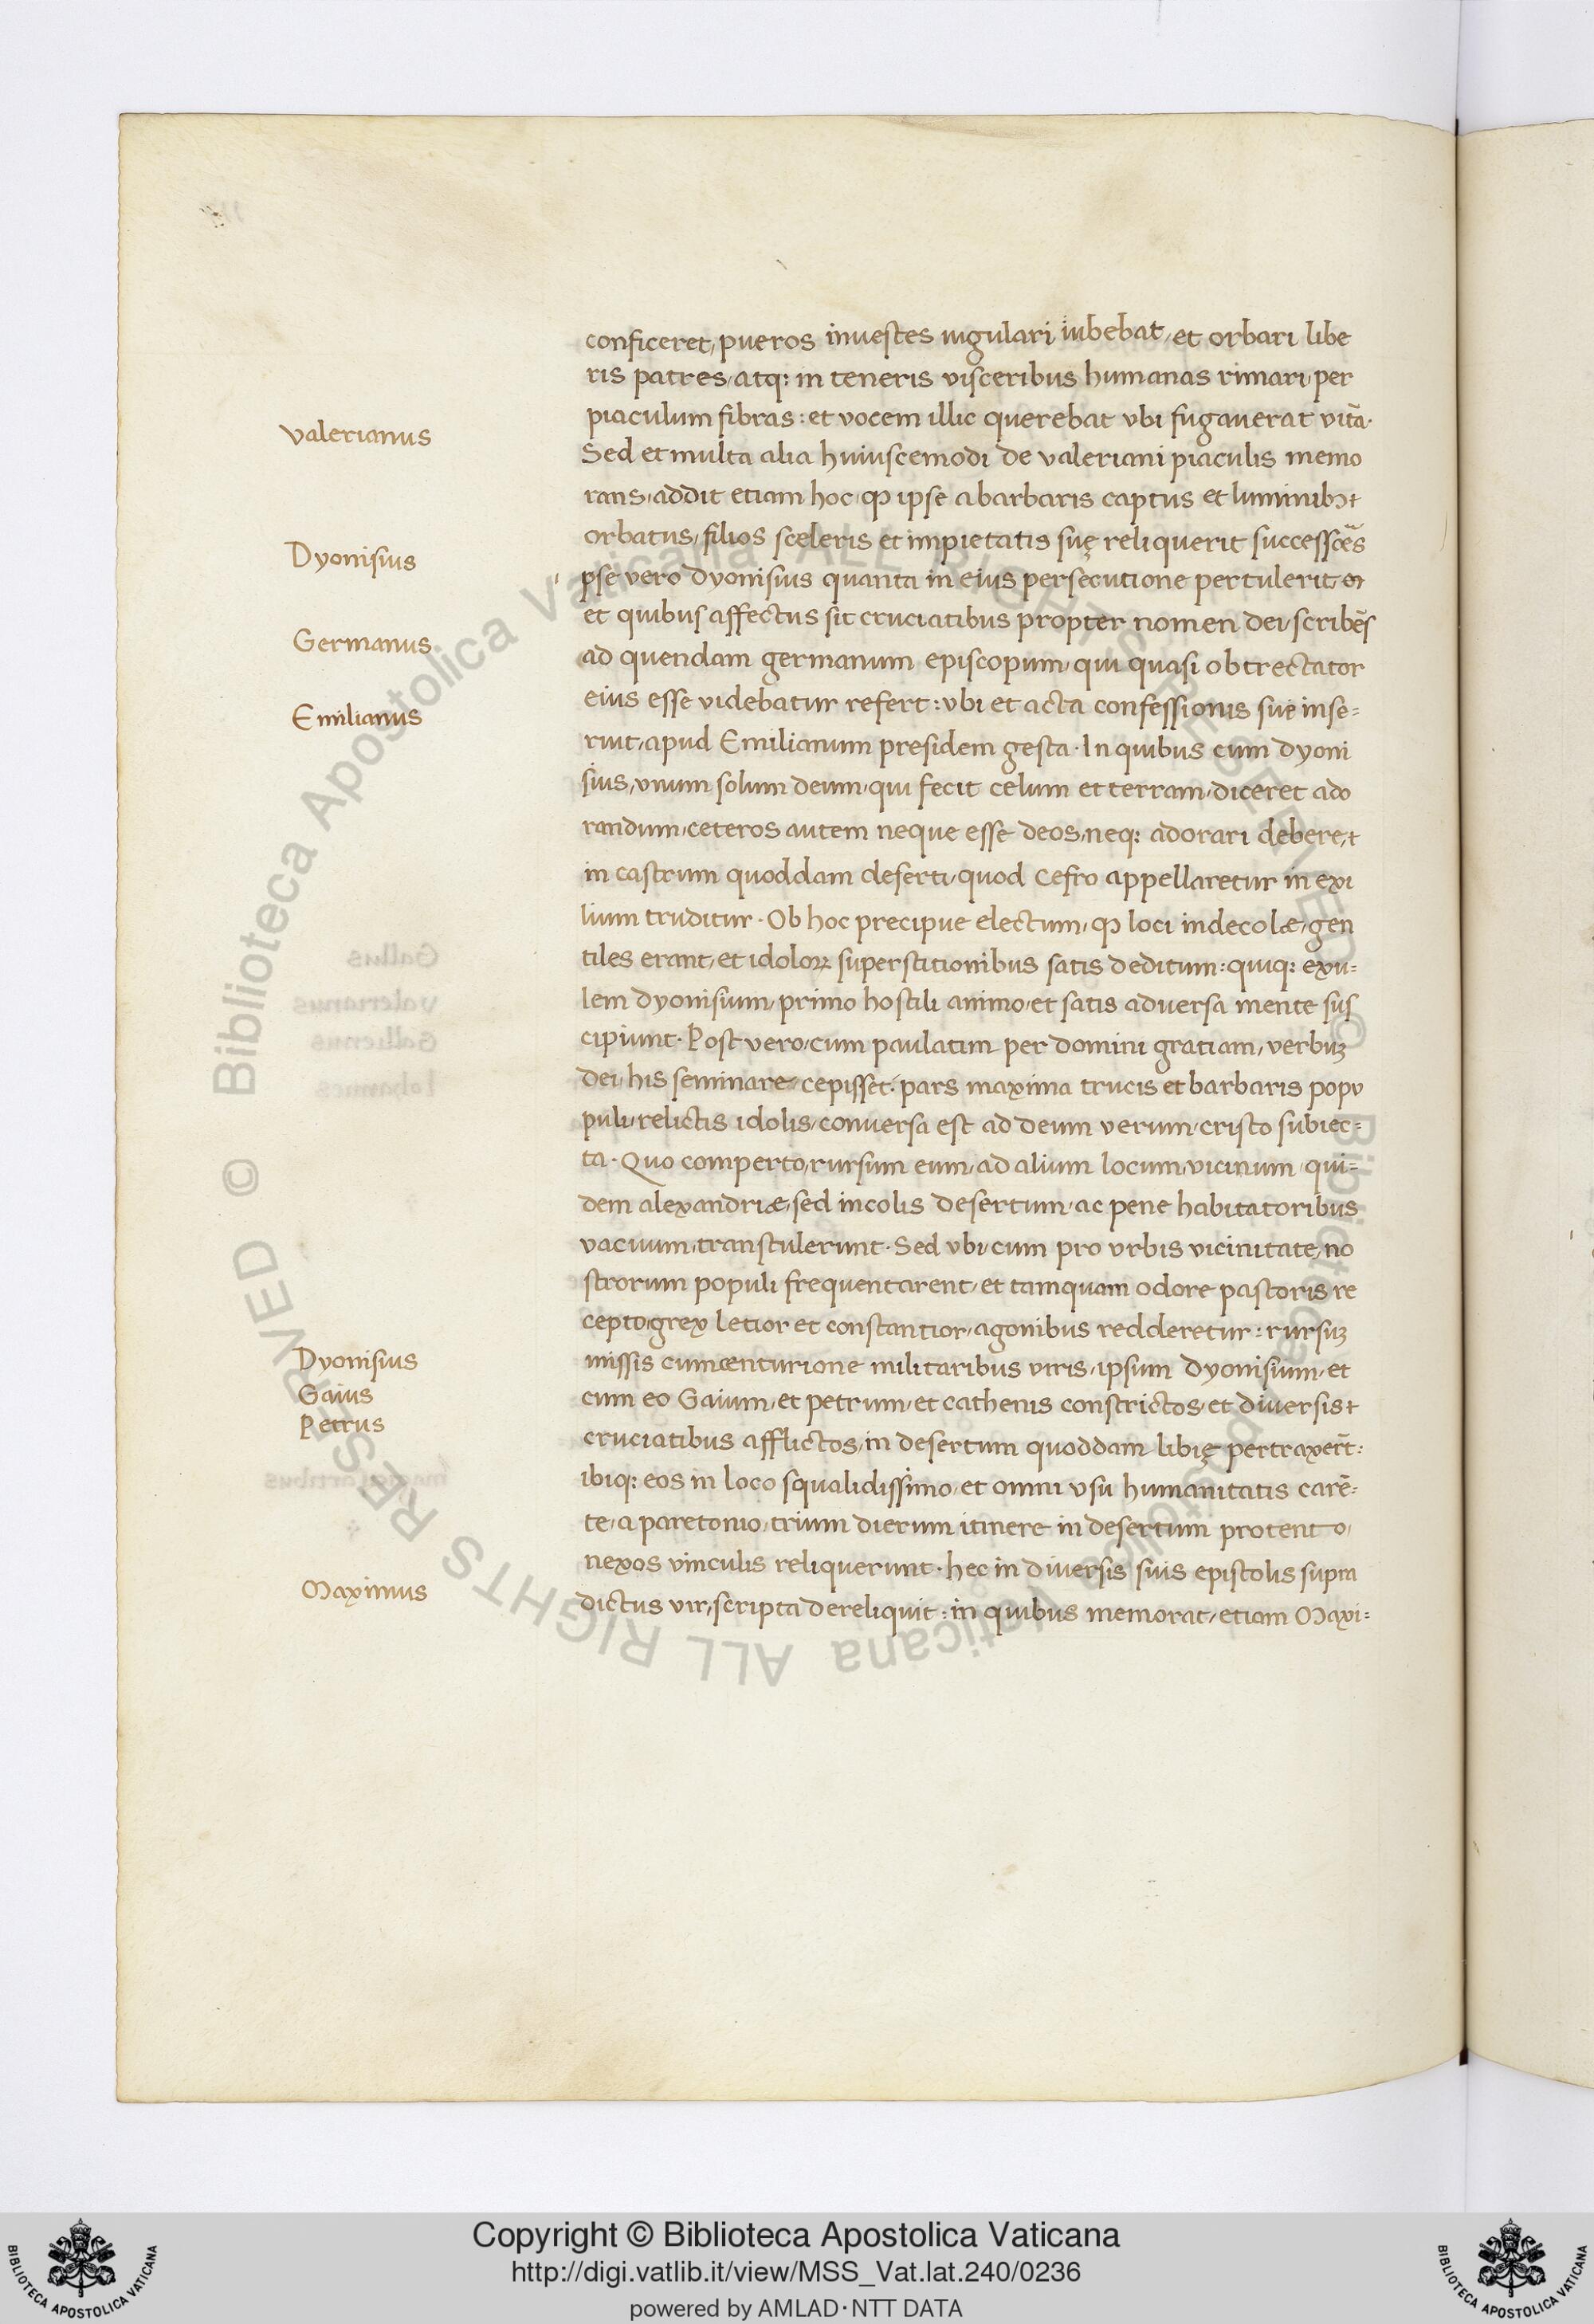 conficeret, pueros inuestes iugulari iubebat, et orbari libe
ris patres, atq: in teneris visceribus humanas rimari, per
piaculum fibras: et vocem illic querebat vbi fugauerat vitā.
Valerianus
Sed et multa alia huiuscemodi de valeriani piaculis memo
rans, addit etiam hoc, ꝙ ipse a barbaris captus et luminibꝫ
Dyonisius
orbatus, filios sceleris et impietatis suę reliquerit successōēs
pse vero dyonisius quanta in eius persecutione pertulerit
et quibus affectus sit cruciatibus propter nomen dei, scribēs
Germanus
ad quendam germanum episcopum, qui quasi obtrectator
Emilianus
eius esse videbatur refert: vbi et acta confessionis sue inse=
ruit, apud Emilianum presidem gesta. In quibus cum dyoni
sius, vnum solum deum, qui fecit celum et terram, diceret ado
randum, ceteros autem neque esse deos, neq: adorari debere,
in castrum quoddam deserti, quod cefro appellaretur in exi
lium truditur. Ob hoc precipue electum, ꝙ loci indecolæ, gen
tiles erant, et idoloꝝ superstitionibus satis deditum: quiq: exu=
lem dyonisium, primo hostili animo, et satis aduersa mente sus
cipiunt. Post vero, cum paulatim per domini gratiam, verbuꝫ
dei, his seminare, cepisset: pars maxima trucis et barbaris popu
puli, relictis idolis, conuersa est ad deum verum, cristo subiec=
ta. Quo comperto, rursum eum, ad alium locum, vicinum, qui=
dem alexandriæ, sed incolis desertum, ac pene habitatoribus
vacuum, transtulerunt. Sed vbi, cum pro vrbis vicinitate, no
strorum populi frequentarent, et tamquam odore pastoris, re
cepto, grex letior et constantior, agonibus redderetur: rursuꝫ
Dyonisius
missis cum centurione militaribus viris, ipsum Dyonisium, et
Gaius
cum eo Gaium, et petrum, et cathenis constrictos, et diuersis
Petrus
cruciatibus afflictos, in desertum quoddam libię pertraxer̄t:
ibiq: eos in loco squalidissimo, et omni vsu humanitatis carē=
te, a paretonio, trium dierum itinere in desertum protento,
nexos vinculis reliquerunt. hec in diuersis suis epistolis supra
Maximus
dictus vir, scripta dereliquit: in quibus memorat, etiam Maxi=
© Biblioteca Apostolica Vaticana ALL RIGHTS RESERVED
Copyright © Biblioteca Apostolica Vaticana
http://digi.vatlib.it/view/MSS_Vat.lat.240/0236
powered by AMLAD·NTT DATA
BIBLIOTECA APOSTOLICA VATICANA
BIBLIOTECA APOSTOLICA VATICANA